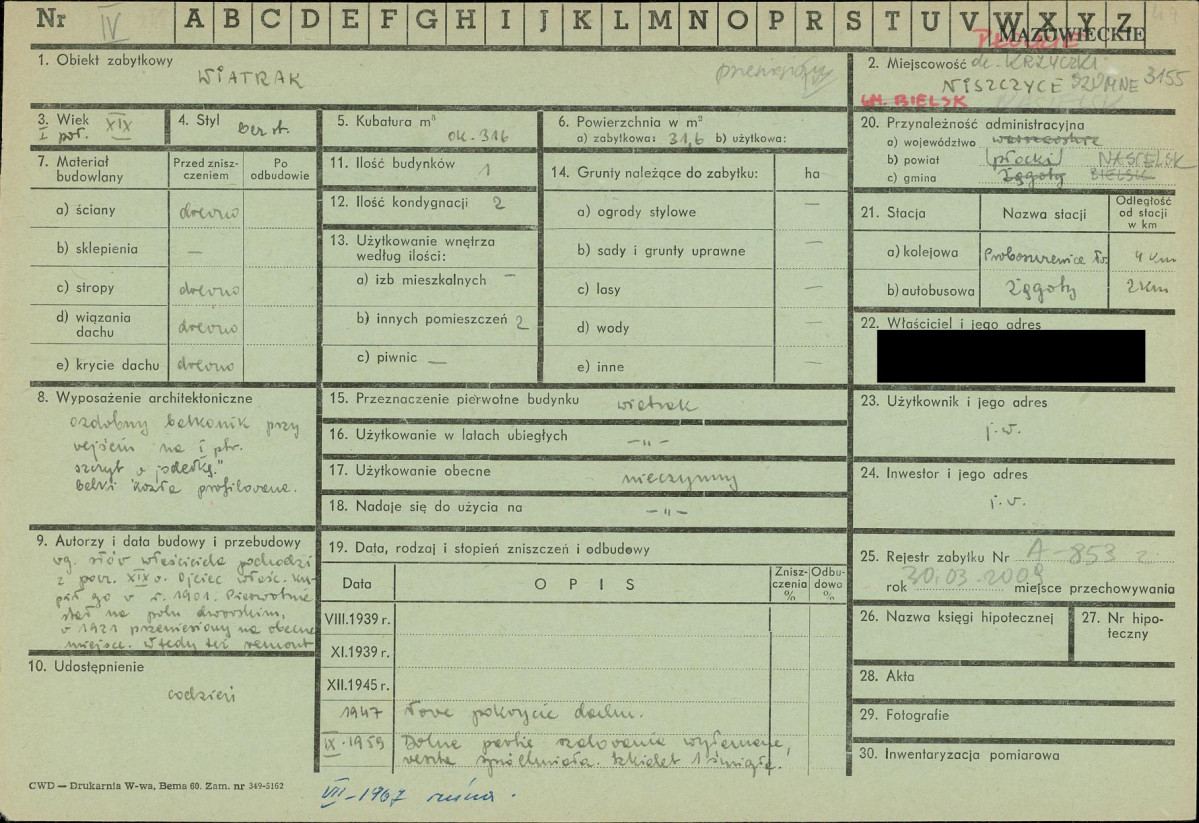 Nr IV A B C D E F G H I J K L M N O P R S T U V W X Y Z
MAZOWIECKIE
1. Obiekt zabytkowy
WIATRAK
przeniesiony
2. Miejscowość dc. KRZYCZKI
NISZCZYCE SZUMNE 3155
GM. BIELSK NASIELSK
3. Wiek XIX
I poł.
4. Styl bez st.
5. Kubatura m³
ok. 316
6. Powierzchnia w m²
a) zabytkowa: 31,6 b) użytkowa:
7. Materiał budowlany
Przed zniszczeniem
Po odbudowie
a) ściany drewno
b) sklepienia —
c) stropy drewno
d) wiązania dachu drewno
e) krycie dachu drewno
8. Wyposażenie architektoniczne
ozdobny balkonik przy
wejściu na I ptr.
szczyt z
belki kozła profilowane.
9. Autorzy i data budowy i przebudowy
wg. słów właściciela pochodzi
z poł. XIX w. Ojciec właśc. ku-
pił go w r. 1901. Pierwotnie
stał na polu dworskim,
w 1921 przeniesiony na obecne
miejsce. Wtedy też remont
10. Udostępnienie
codzień
11. Ilość budynków 1
12. Ilość kondygnacji 2
13. Użytkowanie wnętrza
według ilości:
a) izb mieszkalnych —
b) innych pomieszczeń 2
c) piwnic —
14. Grunty należące do zabytku: ha
a) ogrody stylowe —
b) sady i grunty uprawne —
c) lasy —
d) wody —
e) inne —
15. Przeznaczenie pierwotne budynku wiatrak
16. Użytkowanie w latach ubiegłych –„–
17. Użytkowanie obecne nieczynny
18. Nadaje się do użycia na –„–
19. Data, rodzaj i stopień zniszczeń i odbudowy
Data OPIS Zniszczenia % Odbudowa %
VIII.1939 r.
XI.1939 r.
XII.1945 r.
1947 Nowe pokrycie dachu.
IX-1959 Dolne partie szalowania wyłamane,
reszta spróchniała. Szkielet 1 śmigła.
VII-1967 ruina.
20. Przynależność administracyjna
a) województwo warszawskie
b) powiat (płocki) NASIELSK
c) gmina Zągoty BIELSK
21. Stacja
Nazwa stacji
Odległość od stacji w km
a) kolejowa Proboszczewice 4 km
b) autobusowa Zągoty 2 km
22. Właściciel i jego adres
23. Użytkownik i jego adres
j.w.
24. Inwestor i jego adres
j.w.
25. Rejestr zabytku Nr A-853 z
rok 30.03.2009 miejsce przechowywania
26. Nazwa księgi hipotecznej
27. Nr hipoteczny
28. Akta
29. Fotografie
30. Inwentaryzacja pomiarowa
CWD — Drukarnia W-wa, Bema 60. Zam. nr 349-5162